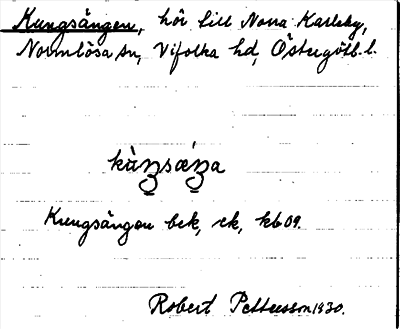 Kungsängen, hör till Norra Karleby,
Normlösa sn, Vifolka hd, Östergötl. l.
Kungsängen bck, ek, kb 09.
Robert Pettersson 1930.